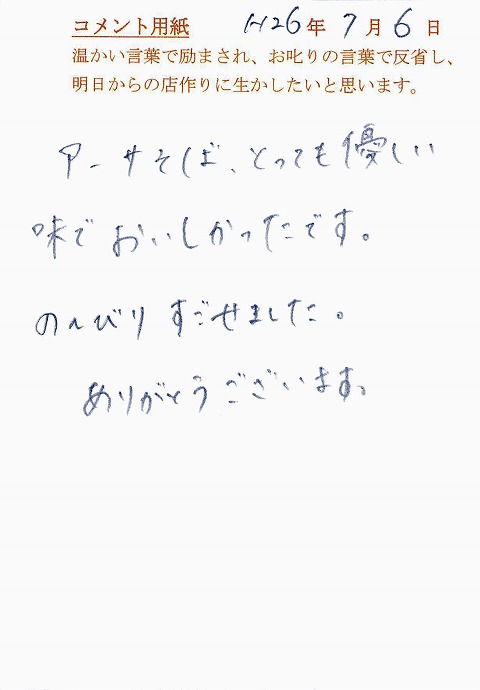 コメント用紙 H26年 7月 6日
温かい言葉で励まされ、お叱りの言葉で反省し、
明日からの店作りに生かしたいと思います。
アーサそば、とっても優しい
味でおいしかったです。
のんびりすごせました。
ありがとうございます。